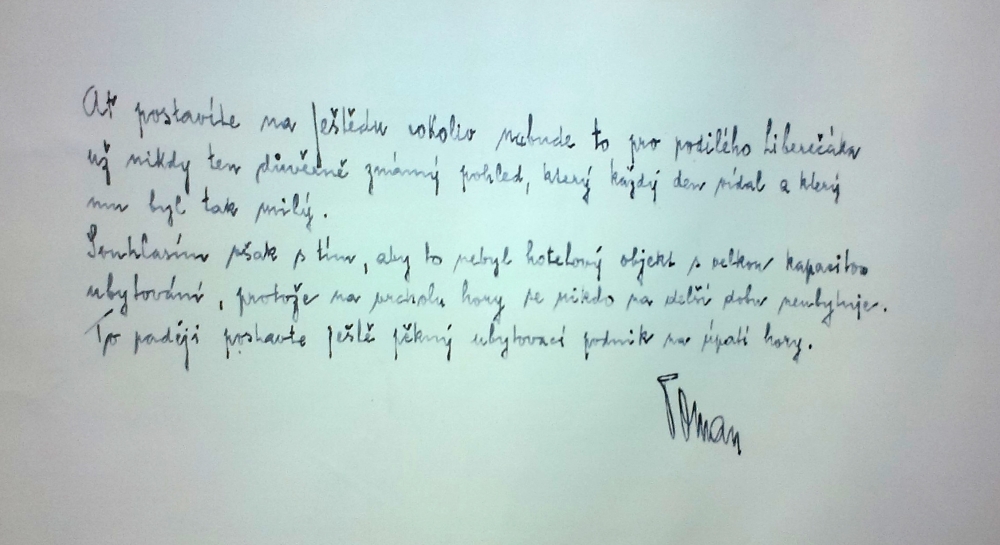 Ať postavíte na Ještědu cokoliv nebude to pro posilého Liberečáka
už nikdy ten důvěrně známý pohled, který každý den vídal a který
mu byl tak milý.
Souhlasím však s tím, aby to nebyl hotelový objekt s velkou kapacitou
ubytování, protože na vrcholu hory se nikdo na delší dobu neubytuje.
To raději postavte ještě pěkný ubytovací podnik na úpatí hory.
Toman